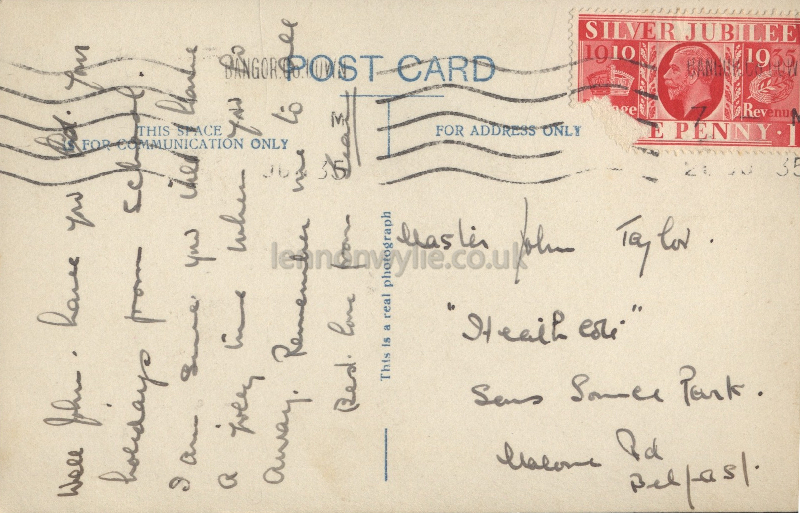 POST CARD
BANGOR CO. DOWN
THIS SPACE
IS FOR COMMUNICATION ONLY
FOR ADDRESS ONLY
SILVER JUBILEE
1910 1935
Revenue
E PENNY · 1
BANGOR CO. DOWN
35
35
Well John. have you got your
holidays from school.
I am sure you will have
a jolly time when you go
away. Remember me to all
Best love from
This is a real photograph
Master John Taylor.
"Heath Cote"
Park.
Malone Rd
Belfast.
lennonwylie.co.uk